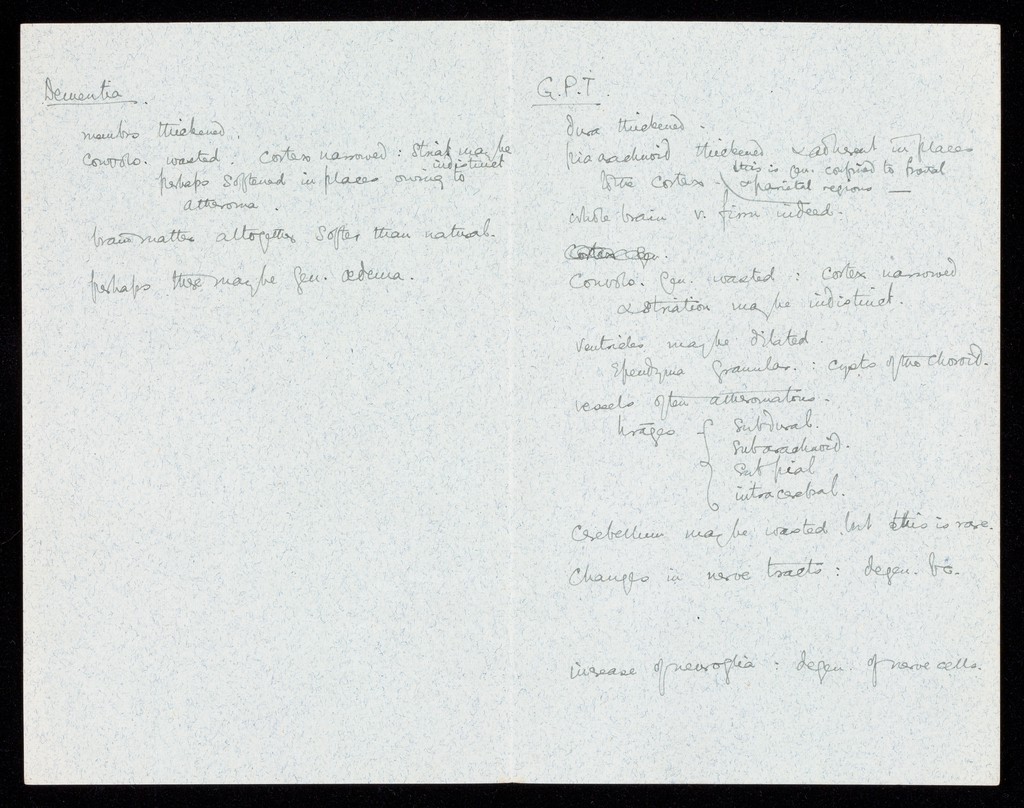 Dementia.
membrs thickened.
Convols. wasted. Cortex narrowed: Striae may be
indistinct
perhaps softened in places owing to
atheroma.
brain matter altogether softer than natural.
perhaps there may be gen. œdema.
G.P.I.
Dura thickened.
pia arachnoid thickened & adherent in places
to the cortex. this is gen. confined to frontal
& parietal regions —
whole brain v. firm indeed.
Cortex gen.
Convols. gen. wasted: cortex narrowed
& striation may be indistinct.
Ventricles may be dilated.
Ependyma granular.: cysts of the choroid.
vessels often atheromatous.
hrages { subdural.
subarachnoid.
sub pial
intracerebral.
Cerebellum may be wasted but this is rare.
Changes in nerve tracts: degen.
increase of neuroglia: degen. of nerve cells.